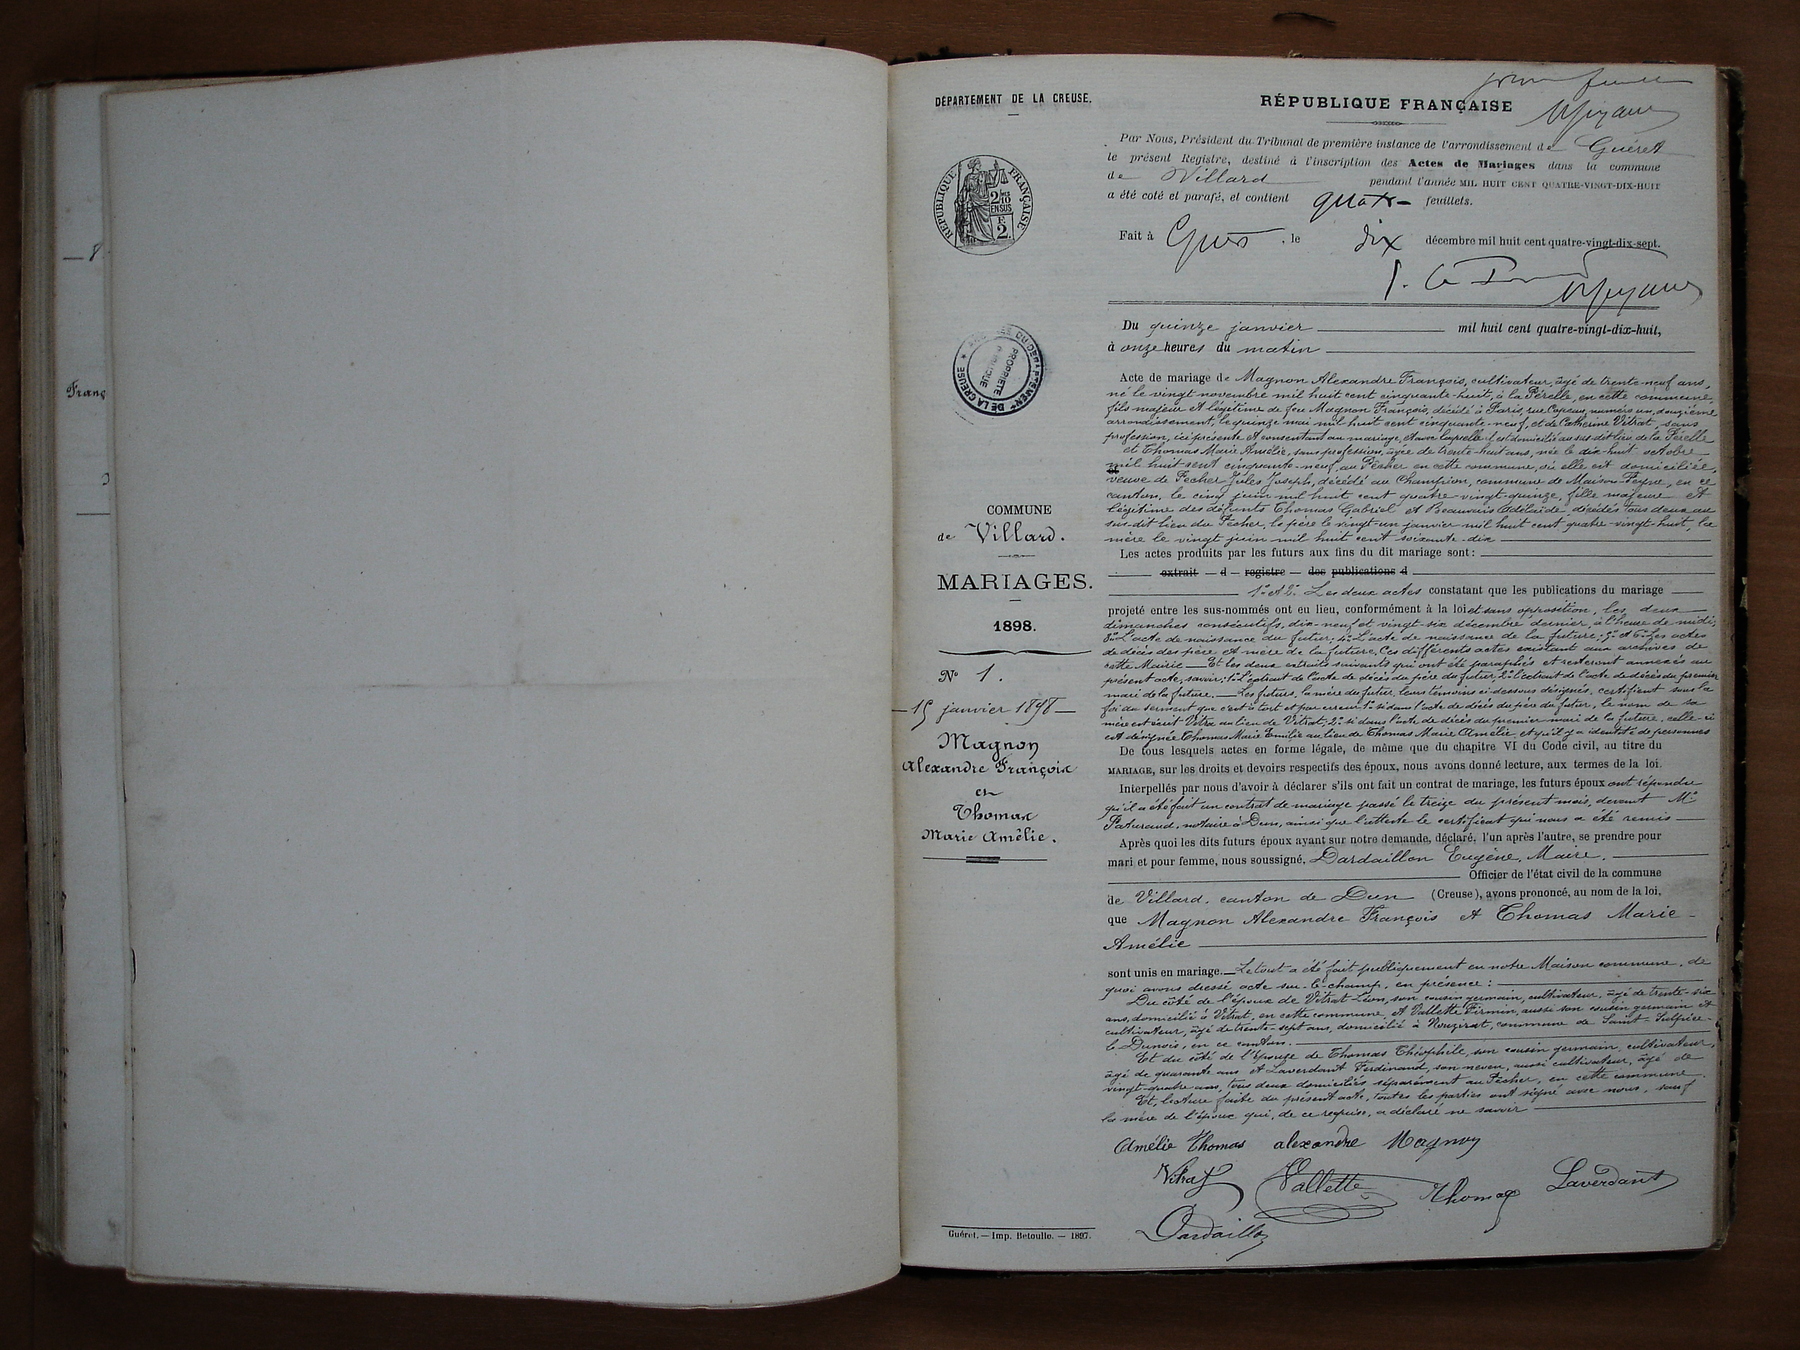 8
Franç
DÉPARTEMENT DE LA CREUSE.
RÉPUBLIQUE FRANÇAISE
Par Nous, Président du Tribunal de première instance de l'arrondissement de Guéret
le présent Registre, destiné à l'inscription des Actes de Mariages dans la commune
de Villard pendant l'année MIL HUIT CENT QUATRE-VINGT-DIX-HUIT
a été coté et parafé, et contient quatre feuillets.
RÉPUBLIQUE FRANÇAISE
Fait à le dix décembre mil huit cent quatre-vingt-dix-sept.
Du quinze janvier mil huit cent quatre-vingt-dix-huit,
à onze heures du matin
DE LA CREUSE
PROPRIÉTÉ PUBLIQUE
Acte de mariage de Magnon Alexandre François, cultivateur, âgé de trente-neuf ans,
né le vingt novembre mil huit cent cinquante-huit, à la Pérelle, en cette commune,
fils majeur et légitime de feu Magnon François, décédé à Paris, rue Copeau, numéro un, douzième
arrondissement, le quinze mai mil huit cent cinquante-neuf, et de Catherine Vitrat, sans
profession, ici présente et consentant au mariage, et avec laquelle il est domicilié au sus-dit lieu de la Pérelle
et Thomas Marie Amélie, sans profession, âgée de trente-huit ans, née le dix-huit octobre
mil huit cent cinquante-neuf, au Pécher en cette commune, où elle est domiciliée,
veuve de Pecher Jules Joseph, décédé au Champion, commune de Maison-Feyne, en ce
canton, le cinq juin mil huit cent quatre-vingt-quinze, fille majeure et
légitime des défunts Thomas Gabriel et Beauvais Adélaïde, décédés tous deux au
sus-dit lieu du Pécher, le père le vingt-un janvier mil huit cent quatre-vingt-huit, la
mère le vingt juin mil huit cent soixante-dix
COMMUNE
de Villard.
MARIAGES.
1898.
N° 1.
15 janvier 1898
Magnon
Alexandre François
et
Thomas
Marie Amélie.
Les actes produits par les futurs aux fins du dit mariage sont :
extrait d registre des publications d
1° et 2° Les deux actes constatant que les publications du mariage
projeté entre les sus-nommés ont eu lieu, conformément à la loi et sans opposition, les deux
dimanches consécutifs, dix-neuf et vingt-six décembre dernier, à l'heure de midi;
3° L'acte de naissance du futur; 4° L'acte de naissance de la future; 5° et 6° Les actes
de décès des père et mère de la future. Ces différents actes existant aux archives de
cette Mairie — Et les deux extraits suivants qui ont été paraphés et resteront annexés au
présent acte, savoir: 1° L'extrait de l'acte de décès du père du futur; 2° L'extrait de l'acte de décès du premier
mari de la future. — Les futurs, la mère du futur, leurs témoins ci-dessous désignés, certifient sous la
foi du serment que c'est à tort et par erreur: 1° si dans l'acte de décès du père du futur, le nom de sa
mère est écrit Vitra au lieu de Vitrat; 2° si dans l'acte de décès du premier mari de la future, celle-ci
est désignée Thomas Marie Emilie au lieu de Thomas Marie Amélie, et qu'il y a identité de personnes
De tous lesquels actes en forme légale, de même que du chapitre VI du Code civil, au titre du
MARIAGE, sur les droits et devoirs respectifs des époux, nous avons donné lecture, aux termes de la loi.
Interpellés par nous d'avoir à déclarer s'ils ont fait un contrat de mariage, les futurs époux ont répondu
qu'il a été fait un contrat de mariage passé le treize du présent mois, devant Me
Paturaud, notaire à Dun, ainsi que l'atteste le certificat qui nous a été remis
Après quoi les dits futurs époux ayant sur notre demande, déclaré, l'un après l'autre, se prendre pour
mari et pour femme, nous soussigné, Dardaillon Eugène, Maire.
Officier de l'état civil de la commune
de Villard, canton de Dun (Creuse), avons prononcé, au nom de la loi,
que Magnon Alexandre François et Thomas Marie
Amélie
sont unis en mariage. — Le tout a été fait publiquement en notre Maison commune, de
quoi avons dressé acte sur-le-champ, en présence :
Du côté de l'époux de Vitrat Léon, son cousin germain, cultivateur, âgé de trente-six
ans, domicilié à Vitrat, en cette commune, et Vallette Firmin, aussi son cousin germain et
cultivateur, âgé de trente-sept ans, domicilié à Nouzirat, commune de Saint-Sulpice-
le Dunois, en ce canton.
Et du côté de l'épouse de Thomas Théophile, son cousin germain, cultivateur,
âgé de quarante ans et Laverdant Ferdinand, son neveu, aussi cultivateur, âgé de
vingt-quatre ans, tous deux domiciliés séparément au Pécher, en cette commune.
Et, lecture faite du présent acte, toutes les parties ont signé avec nous, sauf
la mère de l'époux qui, de ce requise, a déclaré ne savoir
Amélie Thomas alexandre Magnon
Vitrat Vallette Thomas Laverdant
Dardaillon
Guéret. — Imp. Betoulle. — 1897.